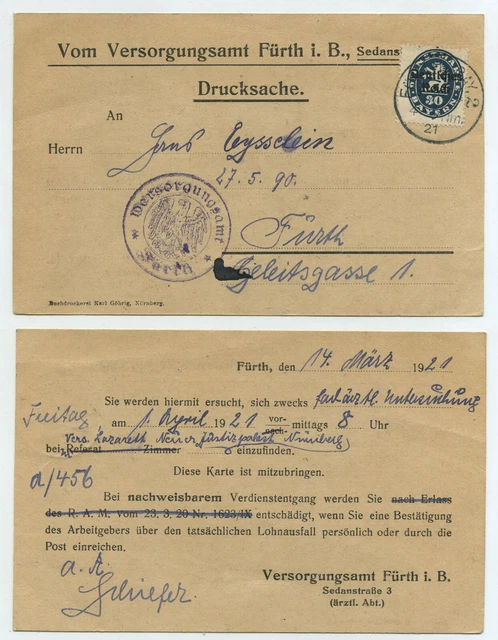 Vom Versorgungsamt Fürth i. B., Sedanst
Drucksache.
An
Herrn Hans Eysslein
27. 5. 90.
Fürth
Geleitsgasse 1.
Versorgungsamt
Fürth
Deutsches Reich
30
BAYERN
21
Buchdruckerei Karl Göhrig, Nürnberg.
Fürth, den 14. März 1921
Sie werden hiermit ersucht, sich zwecks fachärztl. Untersuchung
Freitag am 1. April 1921 vor- nach- mittags 8 Uhr
Vers. Lazarett Neuer Justizpalast Nürnberg
bei Referat Zimmer einzufinden.
a/456
Diese Karte ist mitzubringen.
Bei nachweisbarem Verdienstentgang werden Sie nach Erlass
des R. A. M. vom 23. 3. 20 Nr. 1623/IX entschädigt, wenn Sie eine Bestätigung
des Arbeitgebers über den tatsächlichen Lohnausfall persönlich oder durch die
Post einreichen.
a. A.
Schiefer.
Versorgungsamt Fürth i. B.
Sedanstraße 3
(ärztl. Abt.)